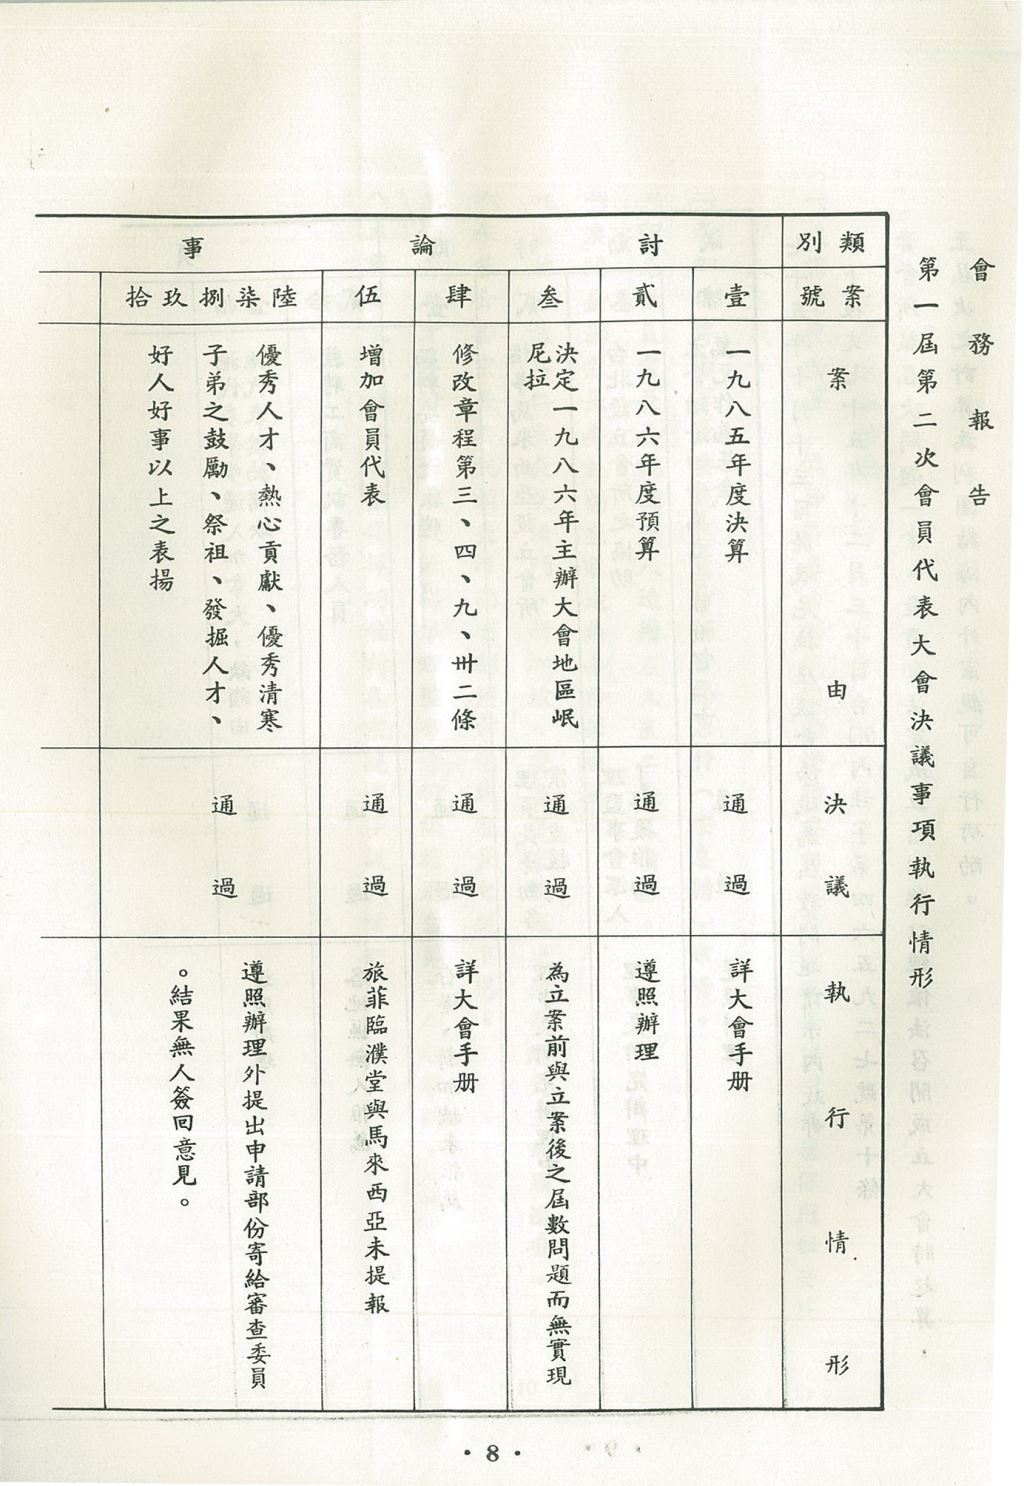 會務報告
第一屆第二次會員代表大會決議事項執行情形
類別
討論事
案號
壹
貳
叁
肆
伍
陸柒捌玖拾
案由
一九八五年度決算
一九八六年度預算
決定一九八六年主辦大會地區岷
尼拉
修改章程第三、四、九、卅二條
增加會員代表
優秀人才、熱心貢獻、優秀清寒
子弟之鼓勵、祭祖、發掘人才、
好人好事以上之表揚
決議
通過
通過
通過
通過
通過
通過
執行情形
詳大會手册
遵照辦理
為立案前與立案後之屆數問題而無實現
詳大會手册
旅菲臨濮堂與馬來西亞未提報
遵照辦理外提出申請部份寄給審查委員
。結果無人簽回意見。
·8·